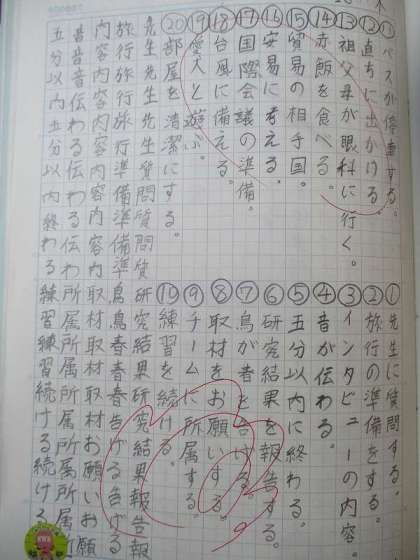 ⑫直ちに出かける。
⑬祖父母が眼科に行く。
⑭赤飯を食べる。
⑮貿易の相手国。
⑯安易に考える。
⑰国際会議の準備。
⑱台風に備える。
⑲愛犬と遊ぶ。
⑳部屋を清潔にする。
先生先生質問質問質
旅行旅行準備準備準
内容内容内容内容内
音音伝わる伝わる伝わ
五分以内五分以内終わる
①先生に質問する。
②旅行の準備をする。
③インタビューの内容。
④音が伝わる。
⑤五分以内に終わる。
⑥研究結果を報告する。
⑦鳥が春を告げる。
⑧取材をお願いする。
⑨チームに所属する。
⑩練習を続ける。
研究結果研究結果報告報
鳥鳥春春告げる告げる
取材取材取材お願いお願
所属所属所属所属
練習練習続ける続ける